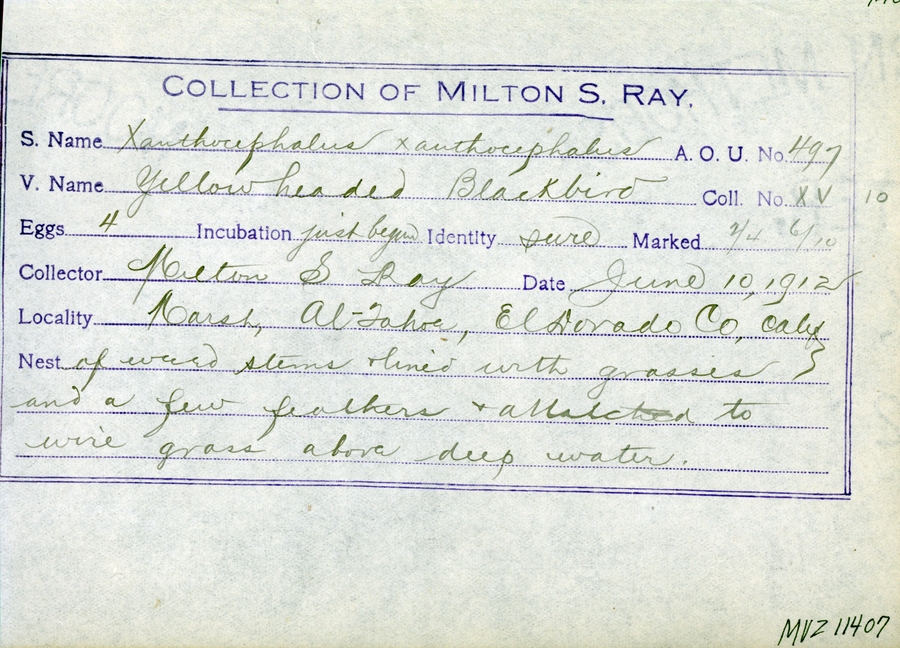 COLLECTION OF MILTON S. RAY.
S. Name Xanthocephalus xanthocephalus A. O. U. No. 497
V. Name Yellow headed Blackbird Coll. No. XV 10
Eggs 4 Incubation just begun Identity sure Marked 2/4 6/10
Collector Milton S Ray Date June 10, 1912
Locality Marsh, Al-Tahoe, El Dorado Co, Calif
Nest of weed stems & lined with grasses
and a few feathers & attatched to
wire grass above deep water.
MVZ 11407